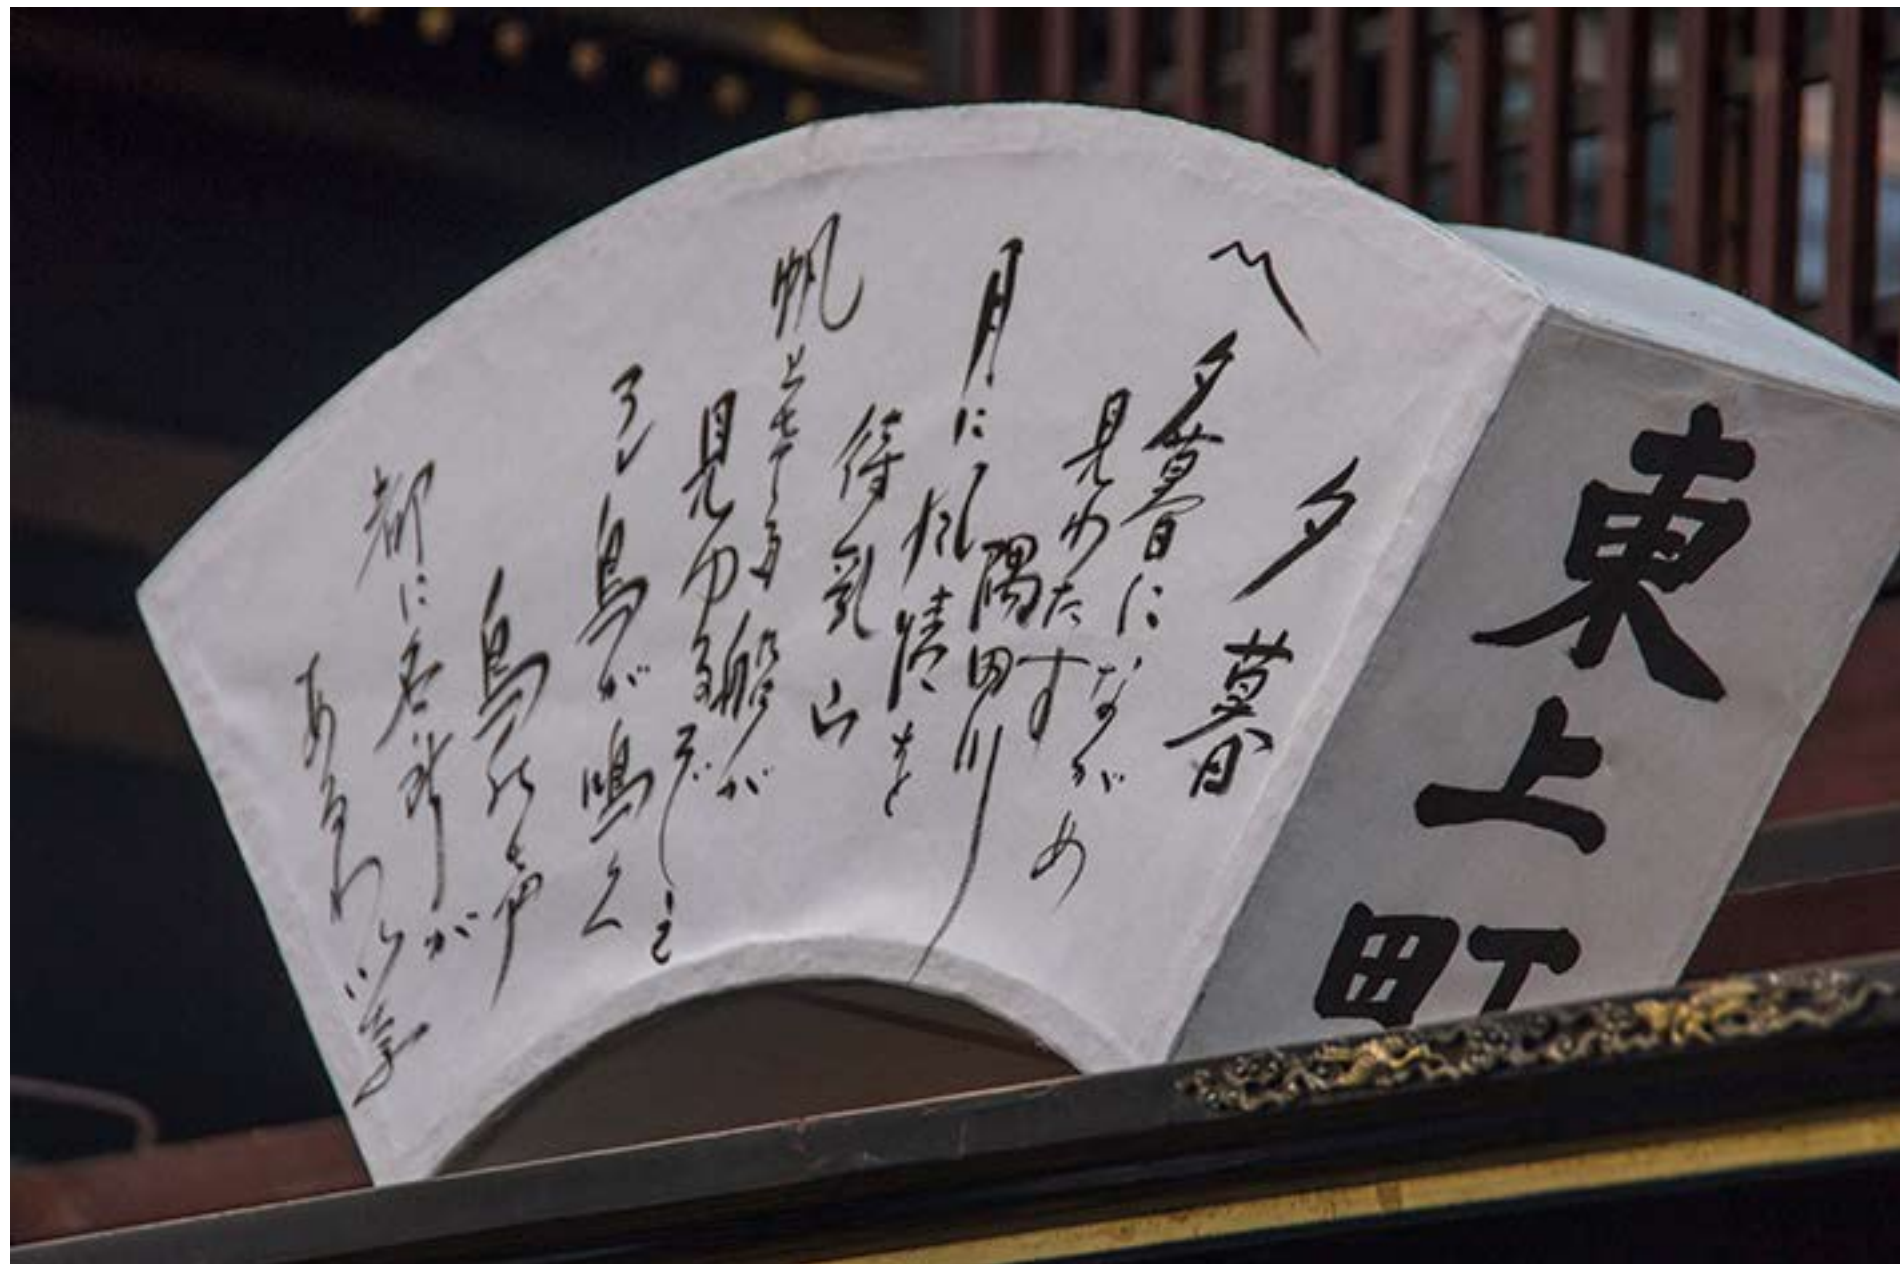 夕暮
〽夕暮にながめ
見わたす隅田川
月に風情を
待乳山
帆上げた船が
見ゆるぞえ
アレ鳥が鳴く
鳥の声
都に名所が
あるわいな
東上町